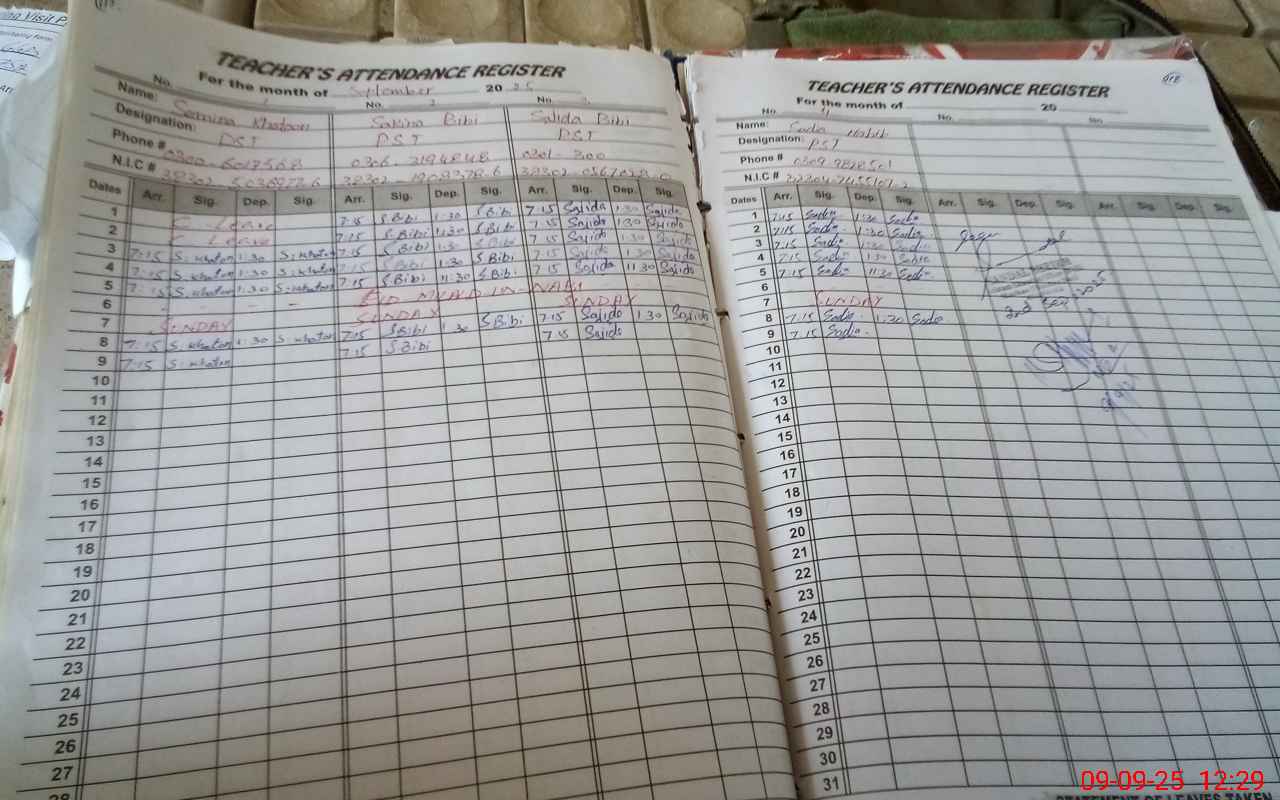 TEACHER'S ATTENDANCE REGISTER
For the month of September 2025
No. 1 No. 2 No. 3
Name: Samina Khatoon Sakina Bibi Sajida Bibi
Designation: PST PST PST
Phone # 0306-3194848 0301-300
N.I.C #
Dates Arr. Sig. Dep. Sig. Arr. Sig. Dep. Sig. Arr. Sig. Dep. Sig.
1 C-Leave 7:15 S Bibi 1:30 S Bibi 7:15 Sajida 1:30 Sajida
2 C Leave 7:15 S Bibi 1:30 S Bibi 7:15 Sajida 1:30 Sajida
3 7:15 S.khaton 1:30 S.khaton 7:15 S Bibi 1:30 S Bibi 7:15 Sajida 1:30 Sajida
4 7:15 S.khaton 1:30 S.khaton 7:15 S Bibi 1:30 S Bibi 7:15 Sajida 1:30 Sajida
5 7:15 S.khaton 1:30 S.khaton 7:15 S Bibi 11:30 S Bibi 7:15 Sajida 11:30 Sajida
6 - - - EID MILAD IN NABI
7 SUNDAY SUNDAY SUNDAY
8 7:15 S.khaton 1:30 S.khaton 7:15 S Bibi 1:30 S Bibi 7:15 Sajida 1:30 Sajida
9 7:15 S.khaton 7:15 S Bibi 7:15 Sajida
10
11
12
13
14
15
16
17
18
19
20
21
22
23
24
25
26
27
28
TEACHER'S ATTENDANCE REGISTER
For the month of 20
No. 4 No. No.
Name: Sadia Habib
Designation: PST
Phone # 0309-7828501
N.I.C #
Dates Arr. Sig. Dep. Sig. Arr. Sig. Dep. Sig. Arr. Sig. Dep. Sig.
1 7:15 Sadia 1:30 Sadia
2 7:15 Sadia 1:30 Sadia
3 7:15 Sadia 1:30 Sadia
4 7:15 Sadia 1:30 Sadia
5 7:15 Sadia 11:30 Sadia
6 - - - -
7 SUNDAY
8 7:15 Sadia 1:30 Sadia
9 7:15 Sadia
10
11
12
13
14
15
16
17
18
19
20
21
22
23
24
25
26
27
28
29
30
31
STATEMENT OF LEAVES TAKEN
09-09-25 12:29